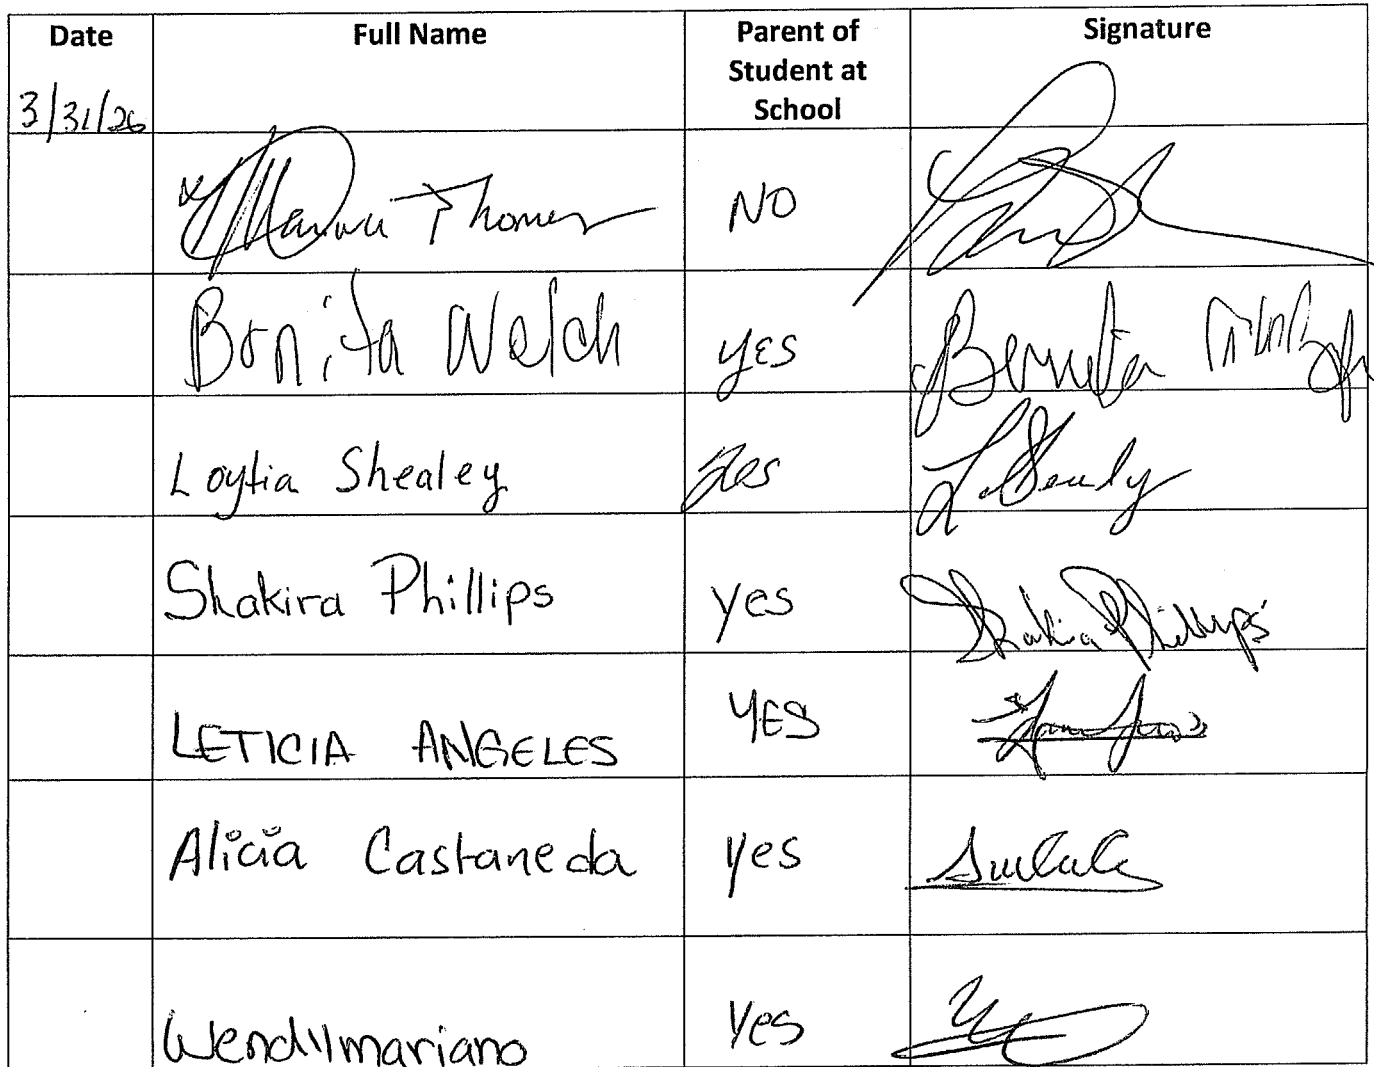 Date Full Name Parent of Signature
Student at
School
3/31/26
Thomas NO
Bonita Welch yes
Loytia Shealey yes L Shealy
Shakira Phillips yes Shakira Phillips
LETICIA ANGELES YES
Alicia Castaneda yes
Wendy mariano Yes